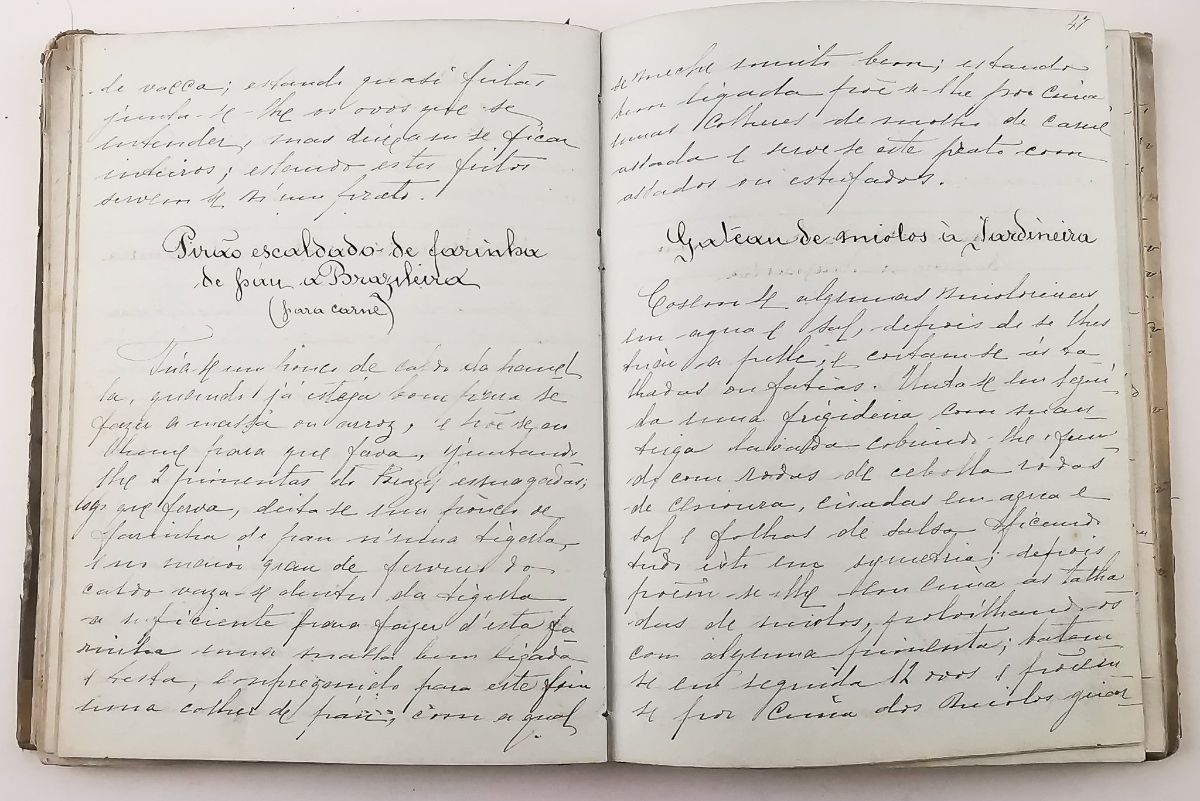 de vacca; estando quasi feitos
junta-se-lhe os ovos que se
entender, mas deveram se ficar
inteiros; estando estes feitos
servem-se n'um prato.
Pirão escaldado de farinha
de páu á Brazileira
(para carne)
Tira-se um pouco de caldo da panel
la, quando já esteja bom para se
fazer a massa ou arroz, e põe-se ao
lhume para que ferva, juntando
lhe 2 pimentas do esmagadas;
logo que ferva, deita-se um pouco de
farinha de pau n'uma tigella,
e no maior grau de fervura do
caldo vaza-se dentro da tigella
o suficiente para fazer d'esta fa
rinha uma massa bem ligada
e testa, empregando para este fim
uma colher de páu, com a qual
47
se meche muito bem; estando
bem ligada põe-se-lhe por cima
umas colheres de molho de carne
assada e serve-se este prato com
assados ou estufados.
Gateau de miolos à Jardineira
Cosem-se algumas mioleiras
em agua e sal, depois de se lhes
tirar a pelle, e cortam-se ás ta
lhadas ou fatias. Unta-se em segui
da uma frigideira com man
teiga lavada cobrindo-lhe o fun
do com rodas de cebolla rodas
de cenoura, cosidas em agua e
sal e folhas de salsa ficando
tudo isto em symetria; depois
põem-se-lhe em cima as talha
das de miolos, polvilhando-os
com alguma pimenta; batem
se em seguida 12 ovos e põem
se por cima dos miolos